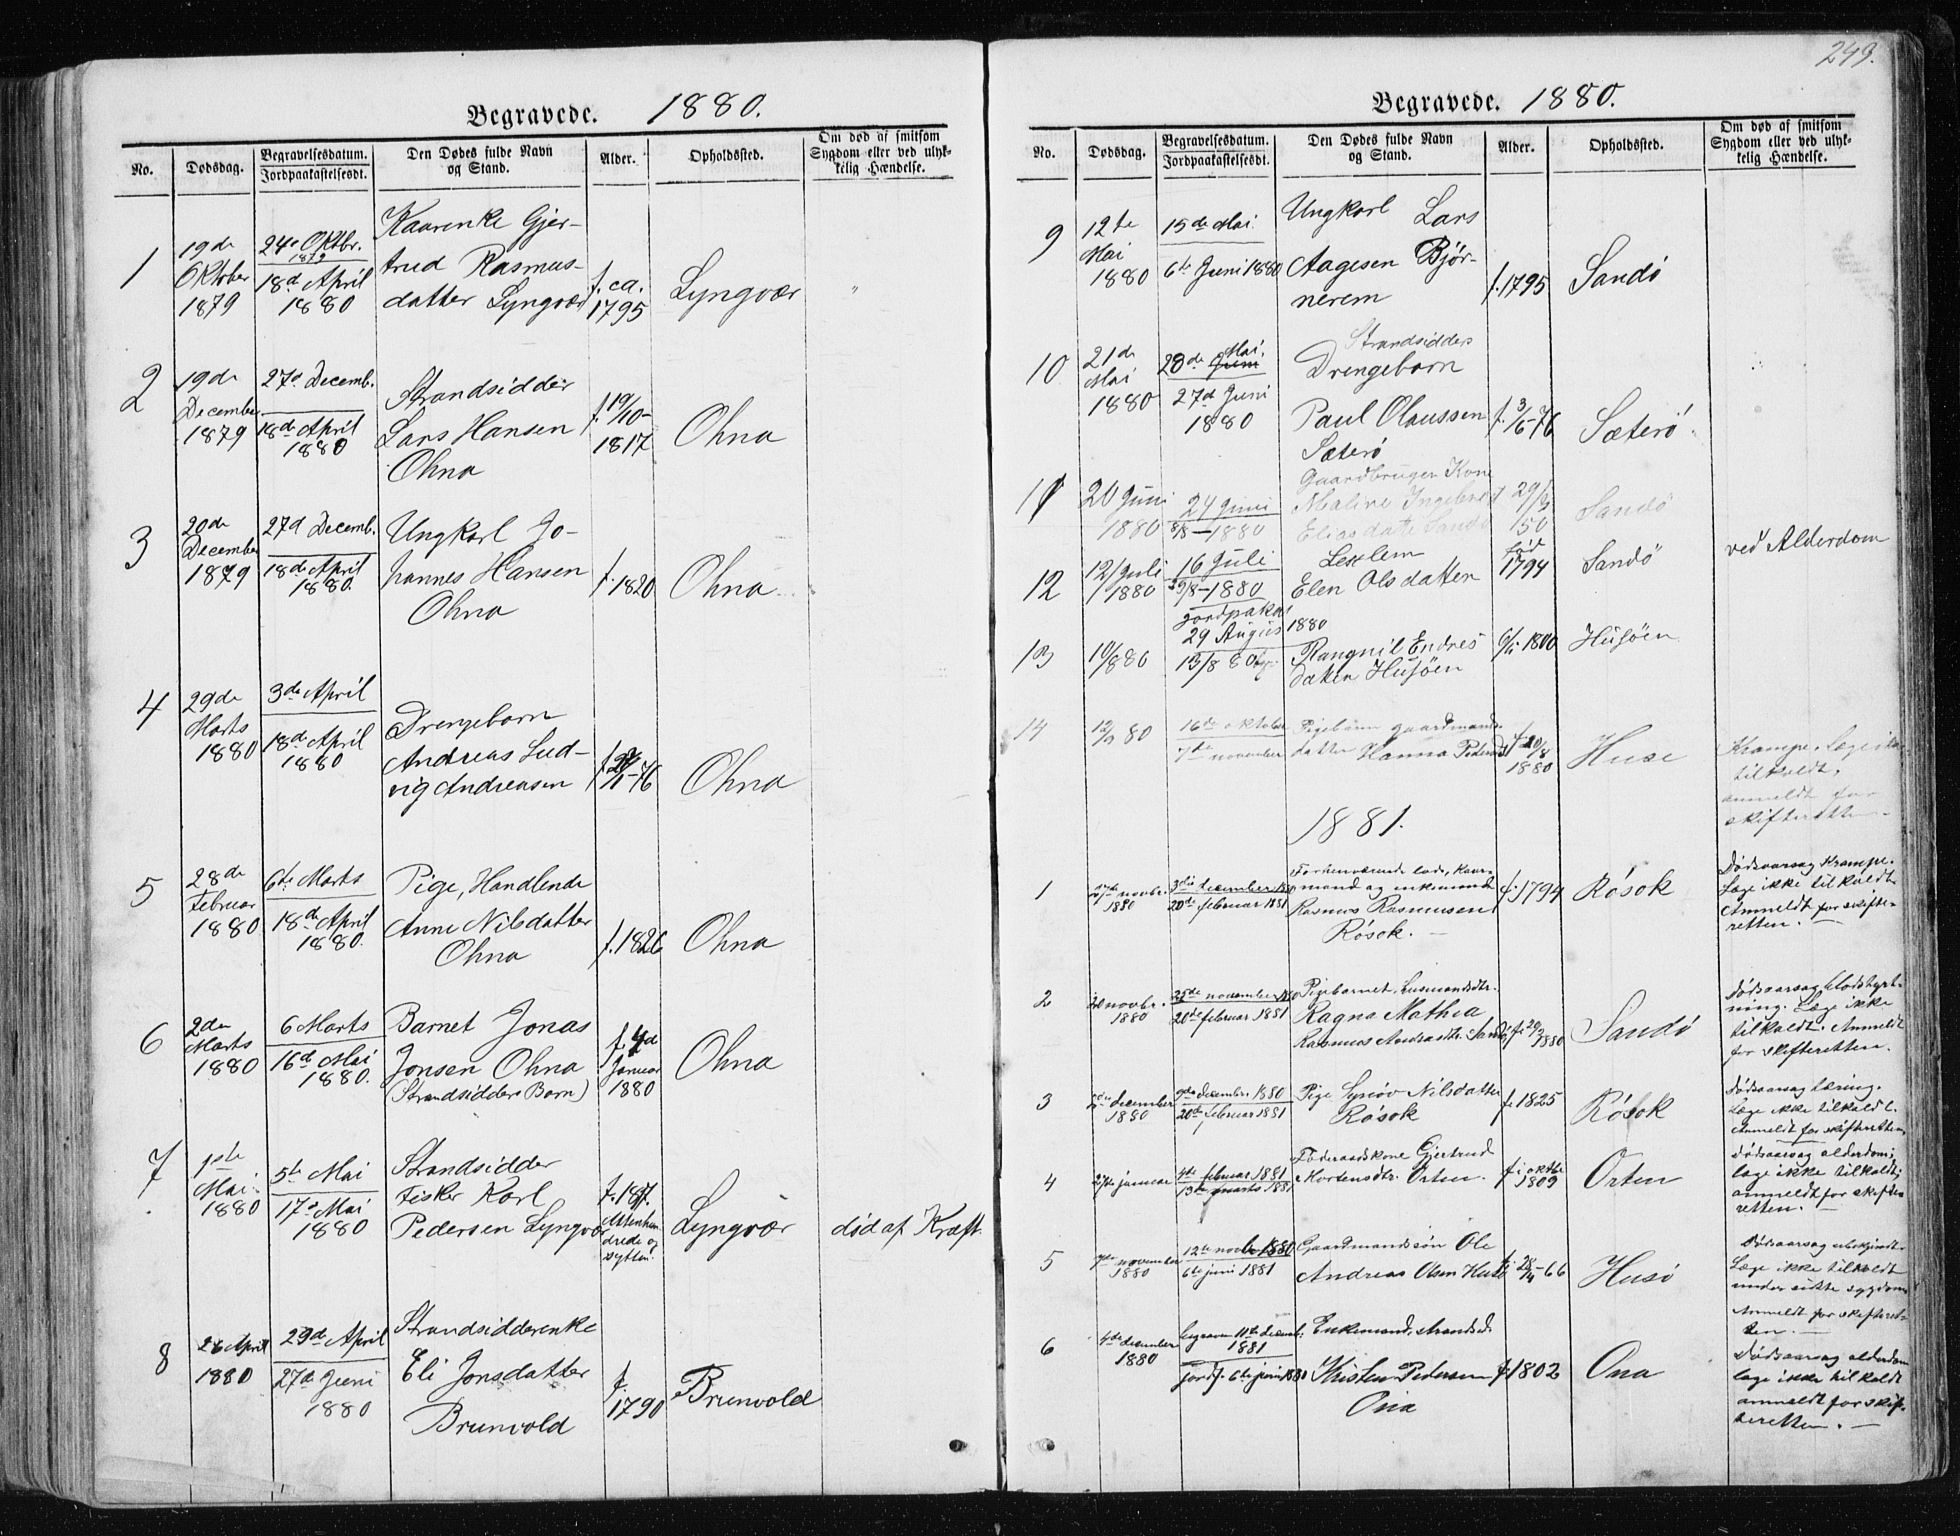 Begravede. 1880.
No. Dødsdag. Begravelsesdatum. Jordpaakastelsesdt. Den Dødes fulde Navn og Stand. Alder. Opholdssted. Om død af smitsom Sygdom eller ved ulykkelig Hændelse.
1 19de Oktober 1879 24de Oktbr. 1879 18de April 1880 Kaarenke Gjertrud Rasmusdatter Lyngvær f. ca. 1795 Lyngvær "
2 19de December 1879 27de Decemb. 18de April 1880 Strandsidder Lars Hansen Ohna f. 19/10-1817 Ohna
3 20de December 1879 27de Decemb. 18de April 1880. Ungkarl Johannes Hansen Ohna f. 1820 Ohna
4 29de Marts 1880 3de April 18de April 1880 Drengebarn Andreas Ludvig Andreasen Ohna
5 28de Februar 1880 6te Marts 18de April 1880. Pige, Handlende Anne Nilsdatter Ohna f. 1826 Ohna
6 2den Marts 1880 6 Marts 16de Mai 1880. Barnet Jonas Jonsen Ohna (Strandsidders Barn) f. Januar 1880 Ohna
7 1ste Mai 1880 5te Mai 17de Mai 1880 Strandsidder Fisker Karl Pedersen Lyngvær f. 1817. Attenhundrede og sytten. Lyngvær død af Kræft.
8 26 April 1880 29de April 27de Juni 1880 Strandsidderenke Eli Jonsdatter Brunvold f. 1790 Brunvold
249.
Begravede. 1880.
No. Dødsdag. Begravelsesdatum. Jordpaakastelsesdt. Den Dødes fulde Navn og Stand. Alder. Opholdssted. Om død af smitsom Sygdom eller ved ulykkelig Hændelse.
9 12te Mai 1880 15de Mai 6te Juni 1880 Ungkarl Lars Aagesen Bjørnerem f. 1795 Sandø
10 21de Mai 1880 28de Juni Mai. 27de Juni 1880 Strandsidders Drengebarn Paul Olaussen Sæterø f. 3/6-76 Sæterø
11 20 Juni 1880 24 Juni 8/8-1880 Gaardbruger Kone Maline Ingebr Eliasdatter Sandø 29/3 50 Sandø
12 12/Juli 1880 16 Juli 1880 Jordpakas 29 August 1880 Elen Olsdatter født 1794 Sandø ved Alderdom
13 10/8 80 13/8 80 Rangnil Endresdatter Husøen 6/1 1800 Husøen
14 12/9 80 16de oktober 7de november Pigebarn gaardmandsdatter Hanna Pedersd f. 20/8 1880 Huse Krampe. Læge ikke tilkaldt. anmeldt for skifteretten
1881.
1 novbr. 1880 3die december 1880 20de februar 1881 Forhenværende lods, kaarmand og enkemand Rasmus Rasmussen Røsok. f. 1794 Røsok Dødsaarsag Krampe. Læge ikke tilkaldt Anmeldt for skifteretten.
2 20 novbr. 1880 25de november 1880 20de februar 1881 Pigebarnet, Husmandsdtr. Ragna Mathea Rasmus Andreasdtr. Sandø f. 29/7 1880 Sandø Dødsaarsag blodstyrtning. Læge ikke tilkaldt. Anmeldt for skifteretten.
3 december 1880 9de december 1880 20de februar 1881 Pige Synøv Nilsdatter Røsok f. 1825 Røsok Dødsaarsag tæring. Læge ikke tilkaldt. Anmeldt for skifteretten.
4 27de januar 4de februar 1881 13de marts 1881 Føderaadskone Gjertrud Mortensdtr. Orten. f. i oktbr 1809 Orten Dødsaarsag alderdom; læge ikke tilkaldt; anmeldt for skifteretten.
5 7de november 1880 12te novb 1880 6te juni 1881 Gaardmandssøn Ole Andreas Olsen Husø f. 28/4-66 Husø Dødsaarsag Læge ikke tilkaldt under sidste sygdom Anmeldt for skifteretten.
6 4de december 1880 begraven 11te decemb. 1881 jordf. 6te juni 1880 Enkemand, strands. Kristen Pedersen Ona f. 1802 Ona Dødsaarsag alderdom læge ikke tilkaldt anmeldt for skifteretten.